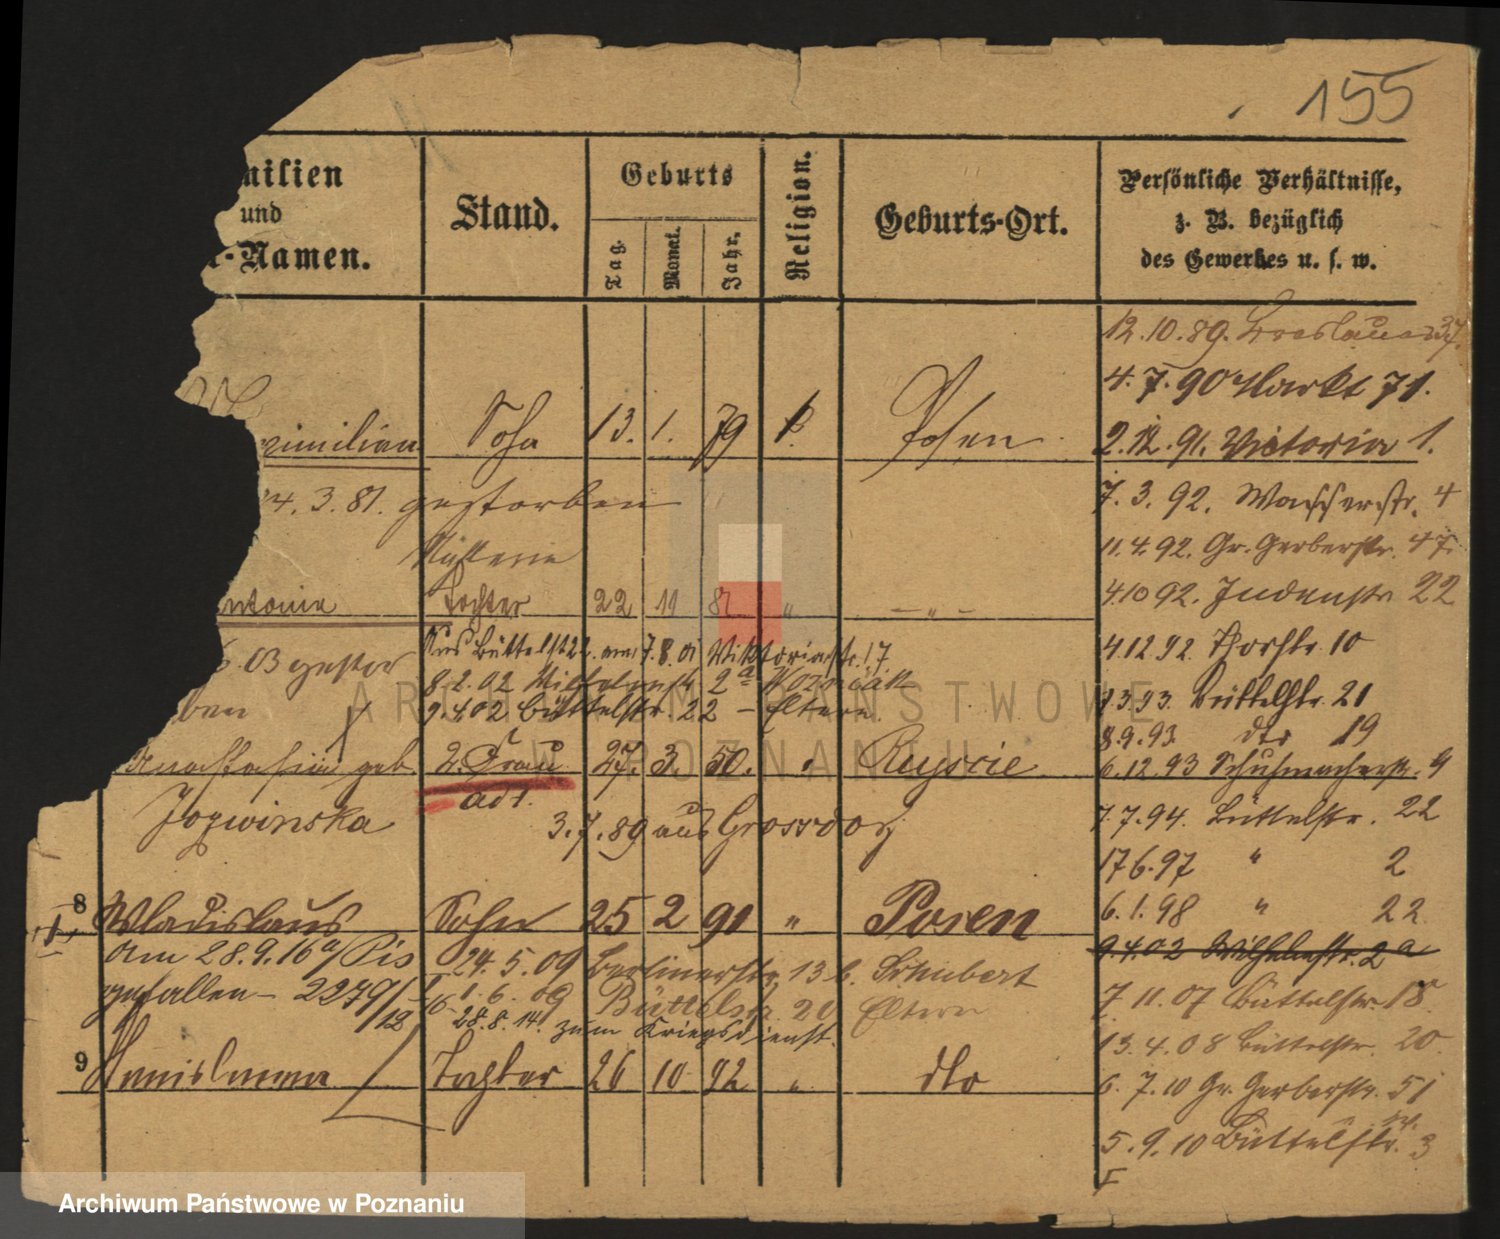 155
milien
und
-Namen.
Stand.
Geburts
Tag.
Monat.
Jahr.
Religion.
Geburts-Ort.
Persönliche Verhältnisse,
z. B. bezüglich
des Gewerbes u. s. w.
12.10.89. Breslauerstr 37.
4.7.90 Markt 71.
ximilian Sohn 13. 1. 79 Posen
2.12.91. Victoria 1.
24.3.81. gestorben
7.3.92. Wasserstr. 4
11.4.92. Gr. Gerberstr. 47.
ntonia Tochter 22 11 81 " — " —
4.10 92. Judenstr 22
03 gestor
ben
Aus Büttelst 22. am 7.8.01 Viktoriastr. 17.
8.2.02 Wilhelmstr. 2a Wozniak
9.4.02 Büttelstr. 22 - Eltern.
4.12.92. Thorstr. 10
1.3.93. Büttelstr. 21
8.9.93. dto 19
Anastasia geb. 2. Frau 27. 3. 50. "
6.12.93 Schuhmacherstr. 9
adt.
Jozwinska
3.7.89 aus Grossdorf
7.7.94. Büttelstr. 22
17.6.97 " 2
8 Wladislaus Sohn 25 2 91 " Posen
6.1.98 " 22
am 28.9.16
gefallen - 2279/
24.5.09 Berlinerstr. 13 b. Schubert
1.6.09 Büttelstr. 20 Eltern
28.8.14. zum Kriegsdienst.
9.4.02 Wilhelmstr. 2a
7.11.07 Büttelstr. 18.
13.4.08 Büttelstr. 20.
9 Stanislawa Tochter 26 10 92 " dto
6.7.10 Gr. Gerberstr. 51
5.9.10 Büttelstr. 3
ARCHIWUM PAŃSTWOWE
W POZNANIU
Archiwum Państwowe w Poznaniu